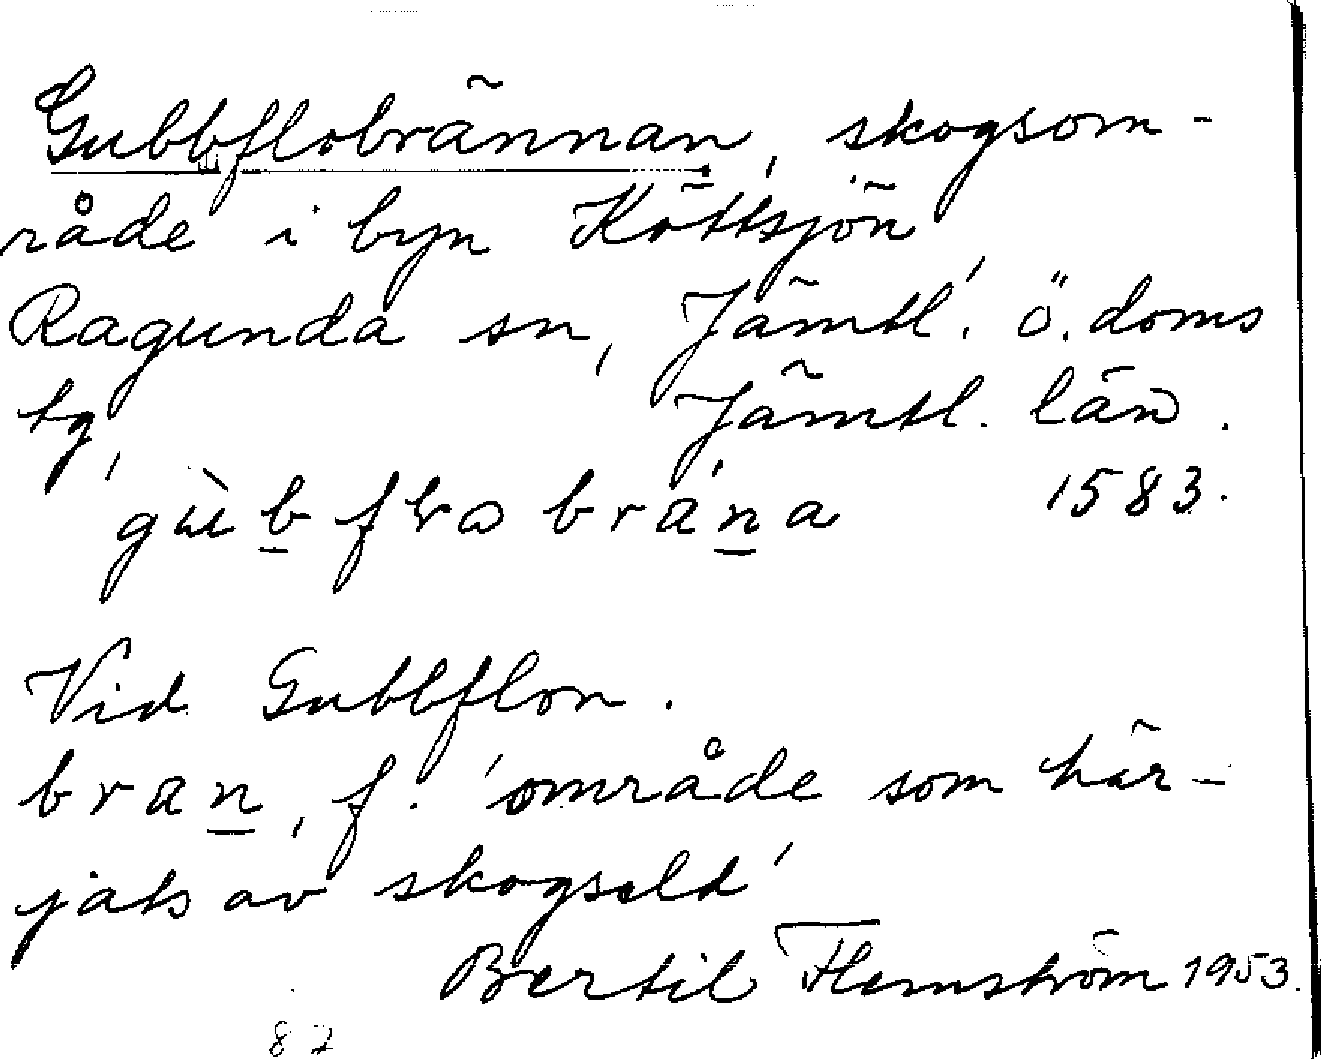 Gubbflobrännan, skogsom-
råde i byn Köttsjön,
Ragunda sn, Jämtl. ö. doms
tg, Jämtl. län.
gùb̲flo bràn̲a 1583.
Vid Gubbflon.
bran̲, f. 'område som här-
jats av skogseld'
Bertil Flemström 1953.
82